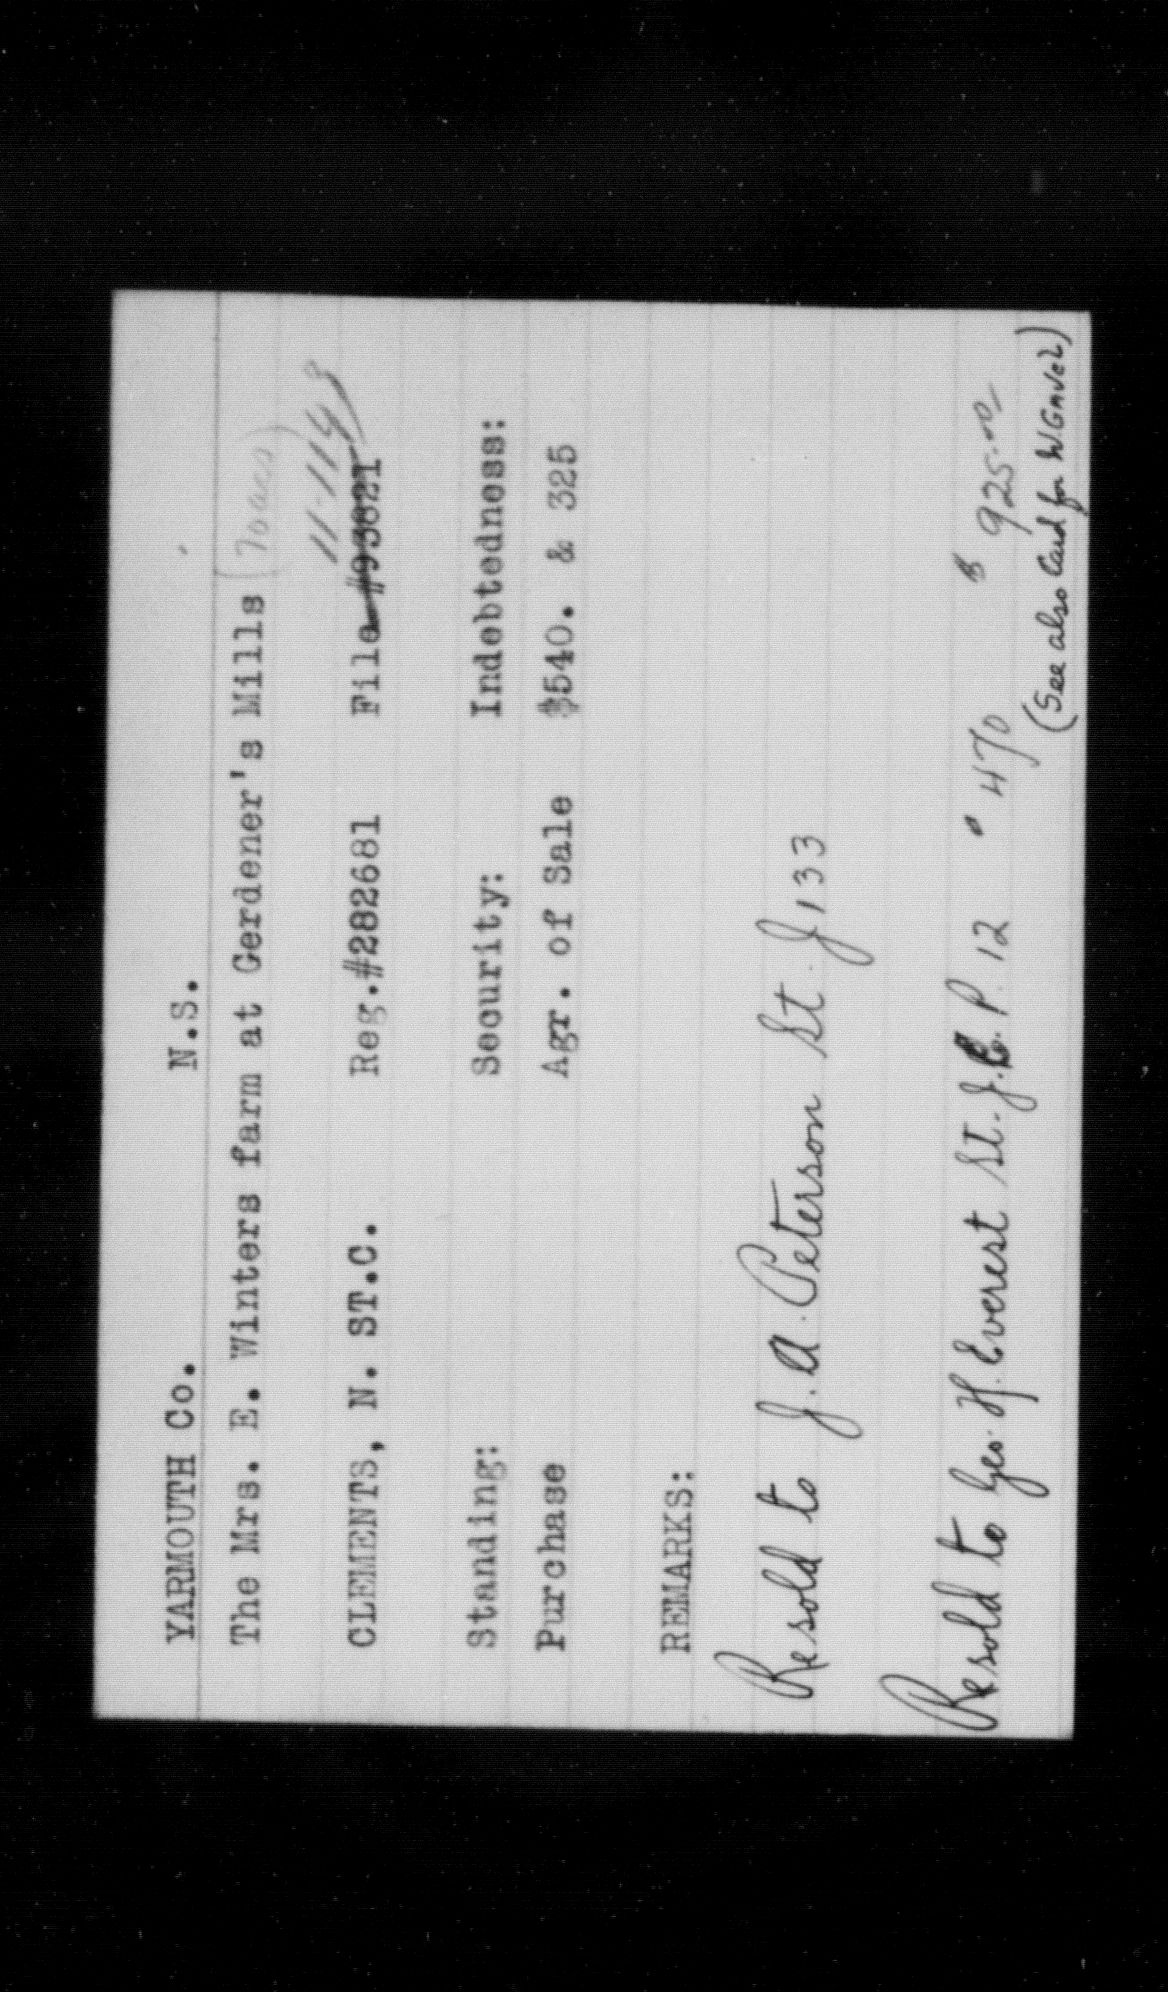 YARMOUTH Co. N.S.
The Mrs. E. Winters farm at Gerdener's Mills (70 acs)
11-1143
CLEMENTS, N. ST.C. Reg.#282681 File #93821
Standing: Security: Indebtedness:
Purchase Agr. of Sale $540. & 325
REMARKS:
Resold to J. A. Peterson St. J 133
Resold to Geo. H. Everest St. J. P. 12 " 470 $ 925.00
(See also Card for W Gavel)